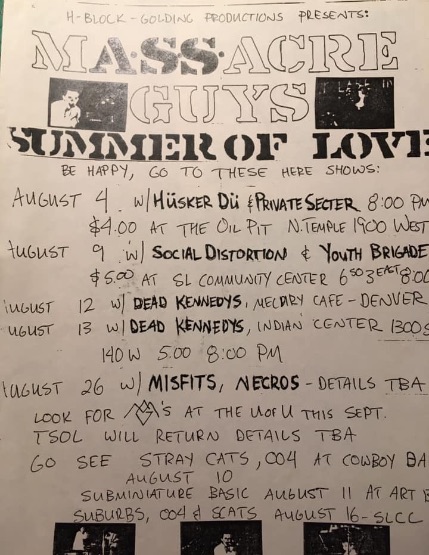 H-BLOCK-GOLDING PRODUCTIONS PRESENTS:
MA·SS·ACRE
GUYS
SUMMER OF LOVE
BE HAPPY, GO TO THESE HERE SHOWS:
AUGUST 4 w/ HÜSKER DÜ & PRIVATE SECTER 8:00 PM
$4.00 AT THE OIL PIT N.TEMPLE 1900 WEST
AUGUST 9 w/ SOCIAL DISTORTION & YOUTH BRIGADE
$5.00 AT SL COMMUNITY CENTER 6 SO 3 EAST 8:00
AUGUST 12 w/ DEAD KENNEDYS, MECURY CAFE - DENVER
UGUST 13 w/ DEAD KENNEDYS, INDIAN CENTER 1300 S
140 W 5.00 8:00 PM
AUGUST 26 w/ MISFITS, NECROS - DETAILS TBA
LOOK FOR 'S AT THE U OF U THIS SEPT.
TSOL WILL RETURN DETAILS TBA
GO SEE STRAY CATS, 004 AT COWBOY BA
AUGUST 10
SUBMINIATURE BASIC AUGUST 11 AT ART B
SUBURBS, 004 & SCATS AUGUST 16 - SLCC